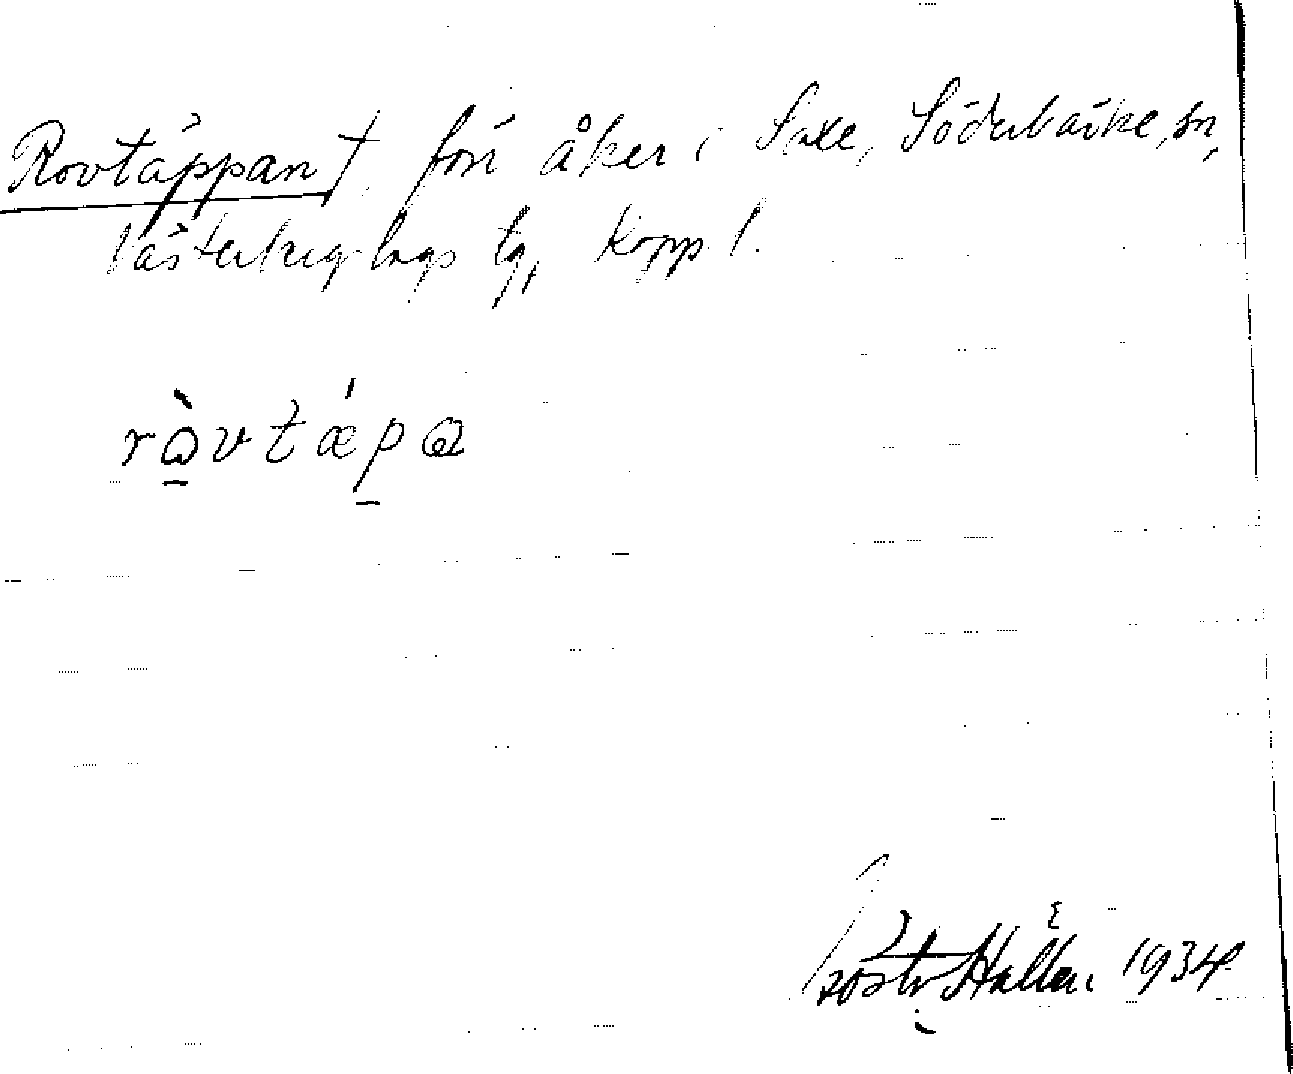 Rovtäppan†, förr åker i Saxe, Söderbärke sn,
Västerbergslags tg, Kopp l.
ròvtǽpa
Hallén 1934